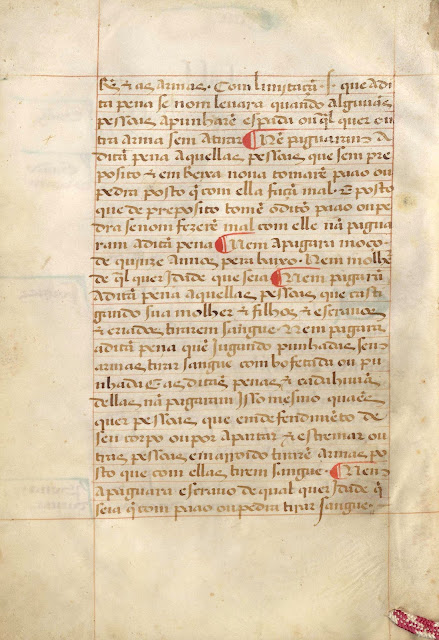 Rs̃ ⁊ as armas · Com limitaçã · s · que adi
ta pena se nom leuara quando algũas
pessoas apunharẽ espada ou q̃l quer ou
tra arma sem a tirar ¶ Nẽ paguaram a
dita pena aquellas pessoas que sem pre
posito ⁊ em Reixa noua tomarẽ paao ou
pedra posto q̃ com ella façã mal · E posto
que de preposito tomẽ o dito paao ou pe
dra se nom fezerẽ mal com elle nã pagua
ram a dita pena ¶ Nem a pagara moço
de quinze annos pera baixo · Nem molhẽ
de q̃l quer Idade que seia ¶ Nem pagarã
a dita pena aquellas pessoas que casti
gando sua molher ⁊ filhos ⁊ escrauos
⁊ criados tirarem sangue · Nem pagarã
a dita pena quẽ Jugando punhadas sem
armas tirar sangue com bofetada ou pu
nhada E as ditas penas ⁊ cada hũa
dellas nã pagaram Isso mesmo quaes
quer pessoas que em defendimẽto de
seu corpo ou por apartar ⁊ estremar ou
tras pessoas em arroido tirarẽ armas po
sto que com ellas tirem sangue · ¶ Nem
a paguara escrauo de qual quer Idade q̃
seia q̃ com paao ou pedra tirar sangue ·